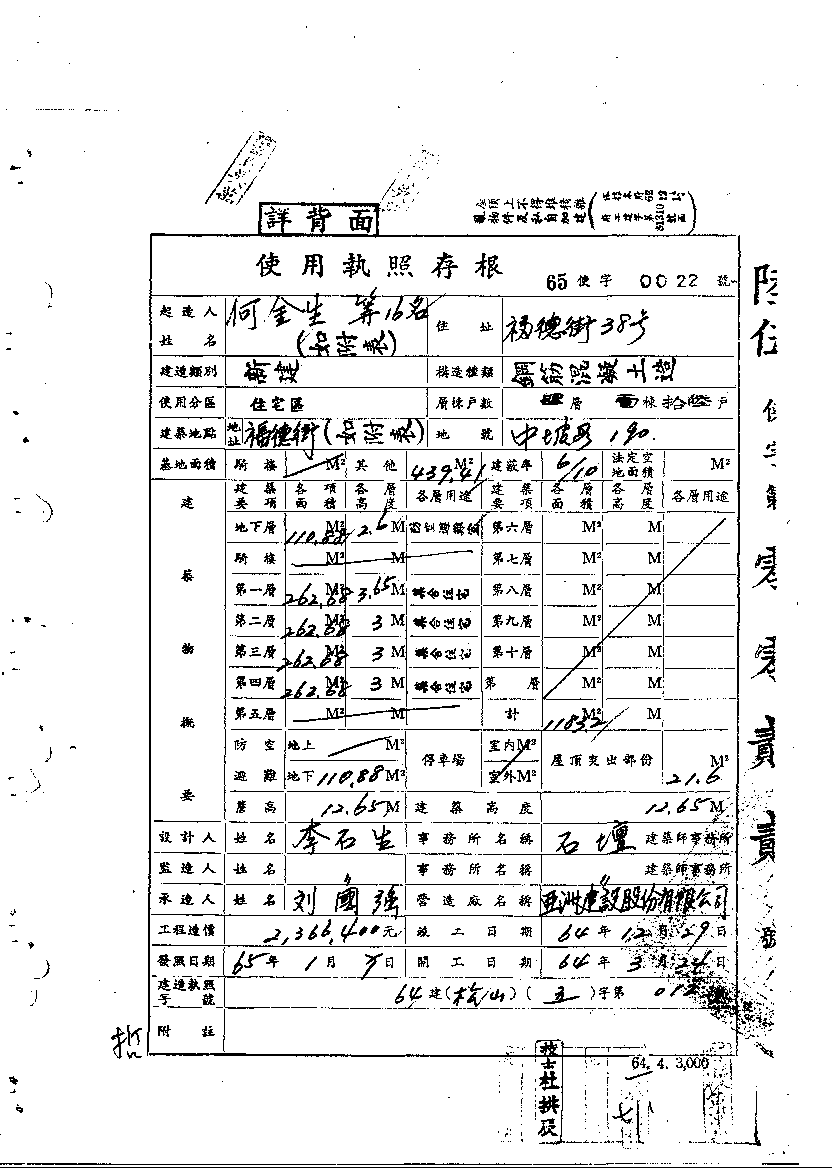 詳背面
屋頂上不得堆積雜
亂物件及私自加建
使用執照存根
65 使字 0022 號
起造人姓名 何金生 等16名 (如附表) 住址 福德街38号
建造類別 新建 構造種類 鋼筋混凝土造
使用分區 住宅區 層棟戶數 層 棟拾陸戶
建築地點 地址 福德街(如附表) 地號 中坡段 190.
基地面積 騎樓 M² 其他 439.41 M² 建蔽率 6/10 法定空地面積 M²
建築物概要 建築要項 各項面積 各層高度 各層用途 建築要項 各層面積 各層高度 各層用途
地下層 110.88 M² 2.6 M 第六層 M² M
騎樓 M² M 第七層 M² M
第一層 262.68 M² 3.65 M 集合住宅 第八層 M² M
第二層 262.68 M² 3 M 集合住宅 第九層 M² M
第三層 262.68 M² 3 M 集合住宅 第十層 M² M
第四層 262.68 M² 3 M 集合住宅 第 層 M² M
第五層 M² M 計 M² M
防空避難 地上 M² 停車場 室內M² 屋頂突出部份 M²
地下 110.88 M² 室外M² 21.6
簷高 12.65 M 建築高度 12.65 M
設計人 姓名 李石生 事務所名稱 石壇 建築師事務所
監造人 姓名 〃 事務所名稱 〃 建築師事務所
承造人 姓名 刘國強 營造廠名稱 亞洲建設股份有限公司
工程造價 2,366,400元 竣工日期 64年12月29日
發照日期 65年1月 日 開工日期 64年3月24日
建造執照字號 64建(松山)(五)字第 號
附註
64. 4. 3,000
陸伍 使字第 零零貳貳 號